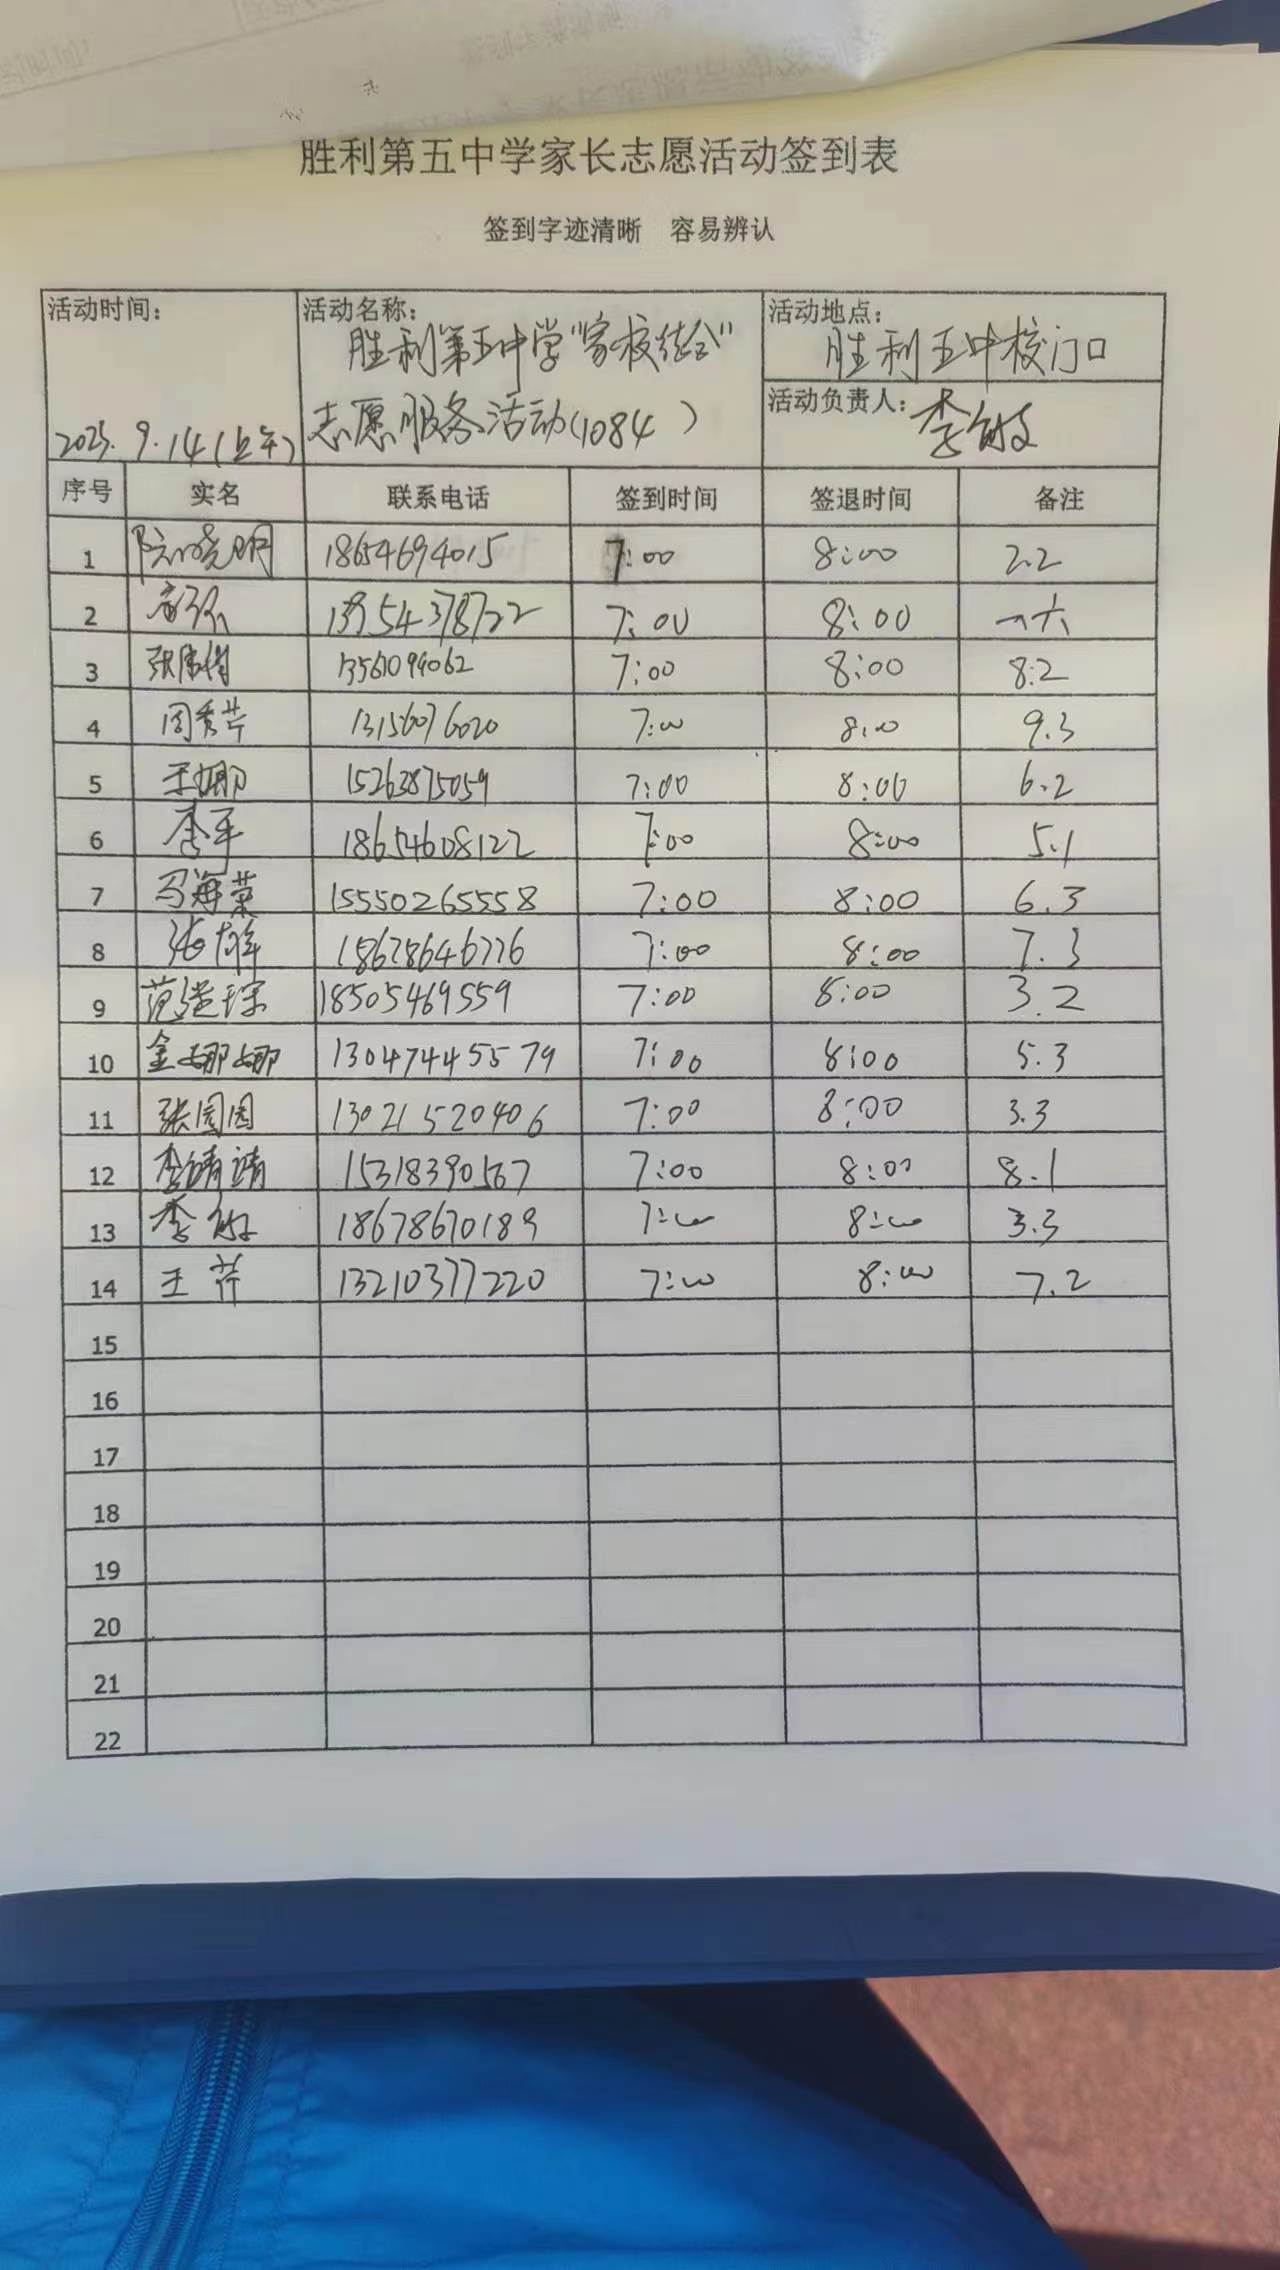 胜利第五中学家长志愿活动签到表
签到字迹清晰 容易辨认
活动时间: 活动名称: 活动地点:
胜利第五中学"家校结合" 胜利五中校门口
志愿服务活动(1084) 活动负责人: 李敏
2025.9.14(上午)
序号 实名 联系电话 签到时间 签退时间 备注
1 阮晓明 18654694015 7:00 8:00 2.2
2 13954378722 7:00 8:00 一.六
3 13561094062 7:00 8:00 8.2
4 周秀芹 13156076020 7:00 8:00 9.3
5 王娜 15263875059 7:00 8:00 6.2
6 李平 18654608122 7:00 8:00 5.1
7 马海荣 15550265558 7:00 8:00 6.3
8 18678646776 7:00 8:00 7.3
9 18505469559 7:00 8:00 3.2
10 金娜娜 13047445579 7:00 8:00 5.3
11 张园园 13021520406 7:00 8:00 3.3
12 李靖靖 15318390567 7:00 8:00 8.1
13 李敏 18678670189 7:00 8:00 3.3
14 王芹 13210377220 7:00 8:00 7.2
15
16
17
18
19
20
21
22